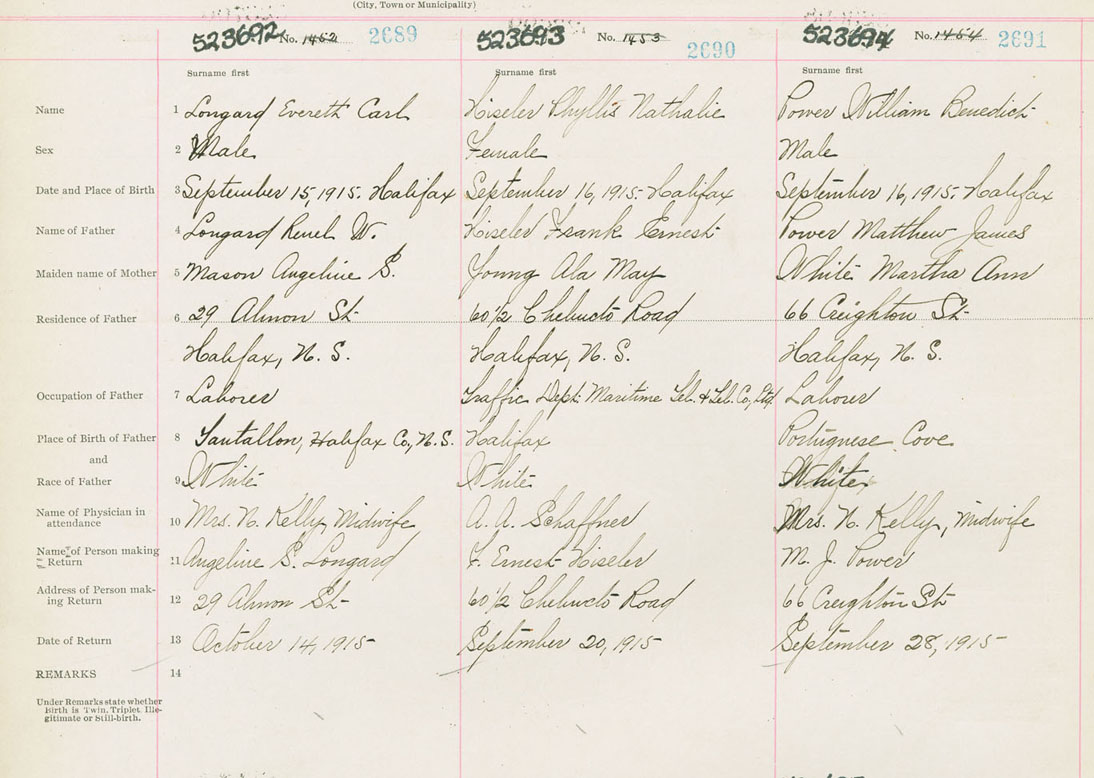 (City, Town or Municipality)
523692 No. 1452 2689 523693 No. 1453 2690 523694 No. 1454 2691
Surname first Surname first Surname first
Name 1 Longard Evereth Carl Hiseler Phyllis Nathalie Power William Benedict
Sex 2 Male Female Male
Date and Place of Birth 3 September 15, 1915. Halifax September 16, 1915. Halifax September 16, 1915. Halifax
Name of Father 4 Longard Reuel W. Hiseler Frank Ernest Power Matthew James
Maiden name of Mother 5 Mason Angeline S. Young Ala May White Martha Ann
Residence of Father 6 29 Almon St. 60 1/2 Chebucto Road 66 Creighton St.
Halifax, N. S. Halifax, N. S. Halifax, N. S.
Occupation of Father 7 Laborer Traffic Dept. Maritime Tel. & Tel. Co., Ltd. Laborer
Place of Birth of Father 8 Tantallon, Halifax Co., N. S. Halifax Portuguese Cove
and
Race of Father 9 White White White
Name of Physician in
attendance 10 Mrs. N. Kelly, Midwife A. A. Schaffner Mrs. N. Kelly, Midwife
Name of Person making
Return 11 Angeline S. Longard F. Ernest Hiseler M. J. Power
Address of Person mak-
ing Return 12 29 Almon St. 60 1/2 Chebucto Road 66 Creighton St.
Date of Return 13 October 14, 1915 September 20, 1915 September 28, 1915
REMARKS 14
Under Remarks state whether
Birth is Twin, Triplet, Ille-
gitimate or Still-birth.